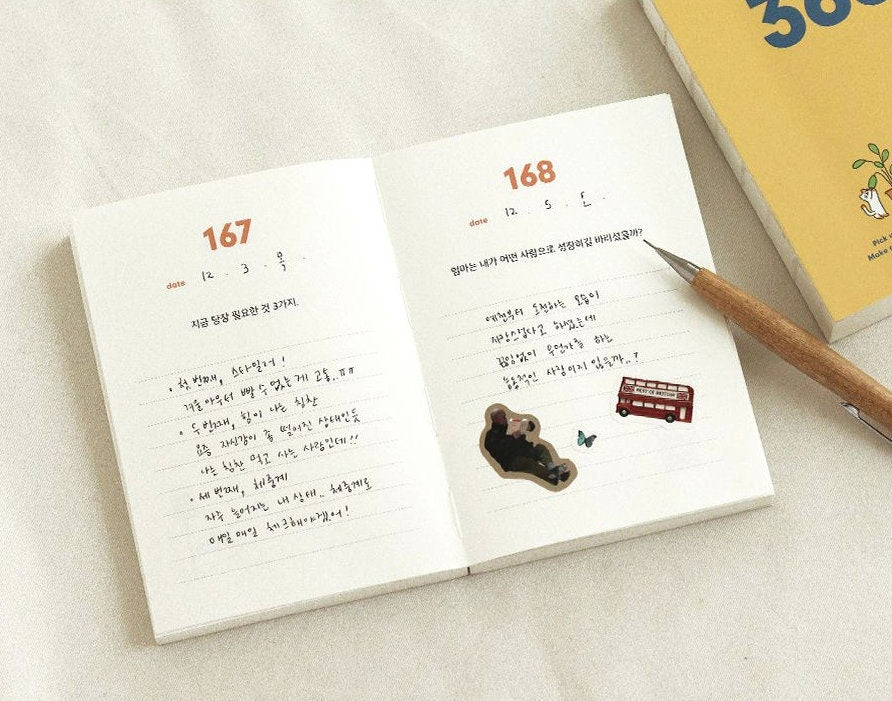 167
date 12 . 3 . 목 .
지금 당장 필요한 것 3가지.
· 첫 번째, 스타일러!
겨울 아우터 빨 수 없는 게 고통..ㅠㅠ
· 두 번째, 힘이 나는 칭찬
요즘 자신감이 좀 떨어진 상태인듯
나는 칭찬 먹고 사는 사람인데!!
· 세 번째, 체중계
자꾸 늘어지는 내 상태.. 체중계로
매일매일 체크해야겠어!
168
date 12 . 5 . 토 .
엄마는 내가 어떤 사람으로 성장하길 바라셨을까?
예전부터 도전하는 모습이
자랑스럽다고 하셨는데
끊임없이 무언가를 하는
능동적인 사람이지 않을까..?
BEST OF BRITISH
36
Pick
Make